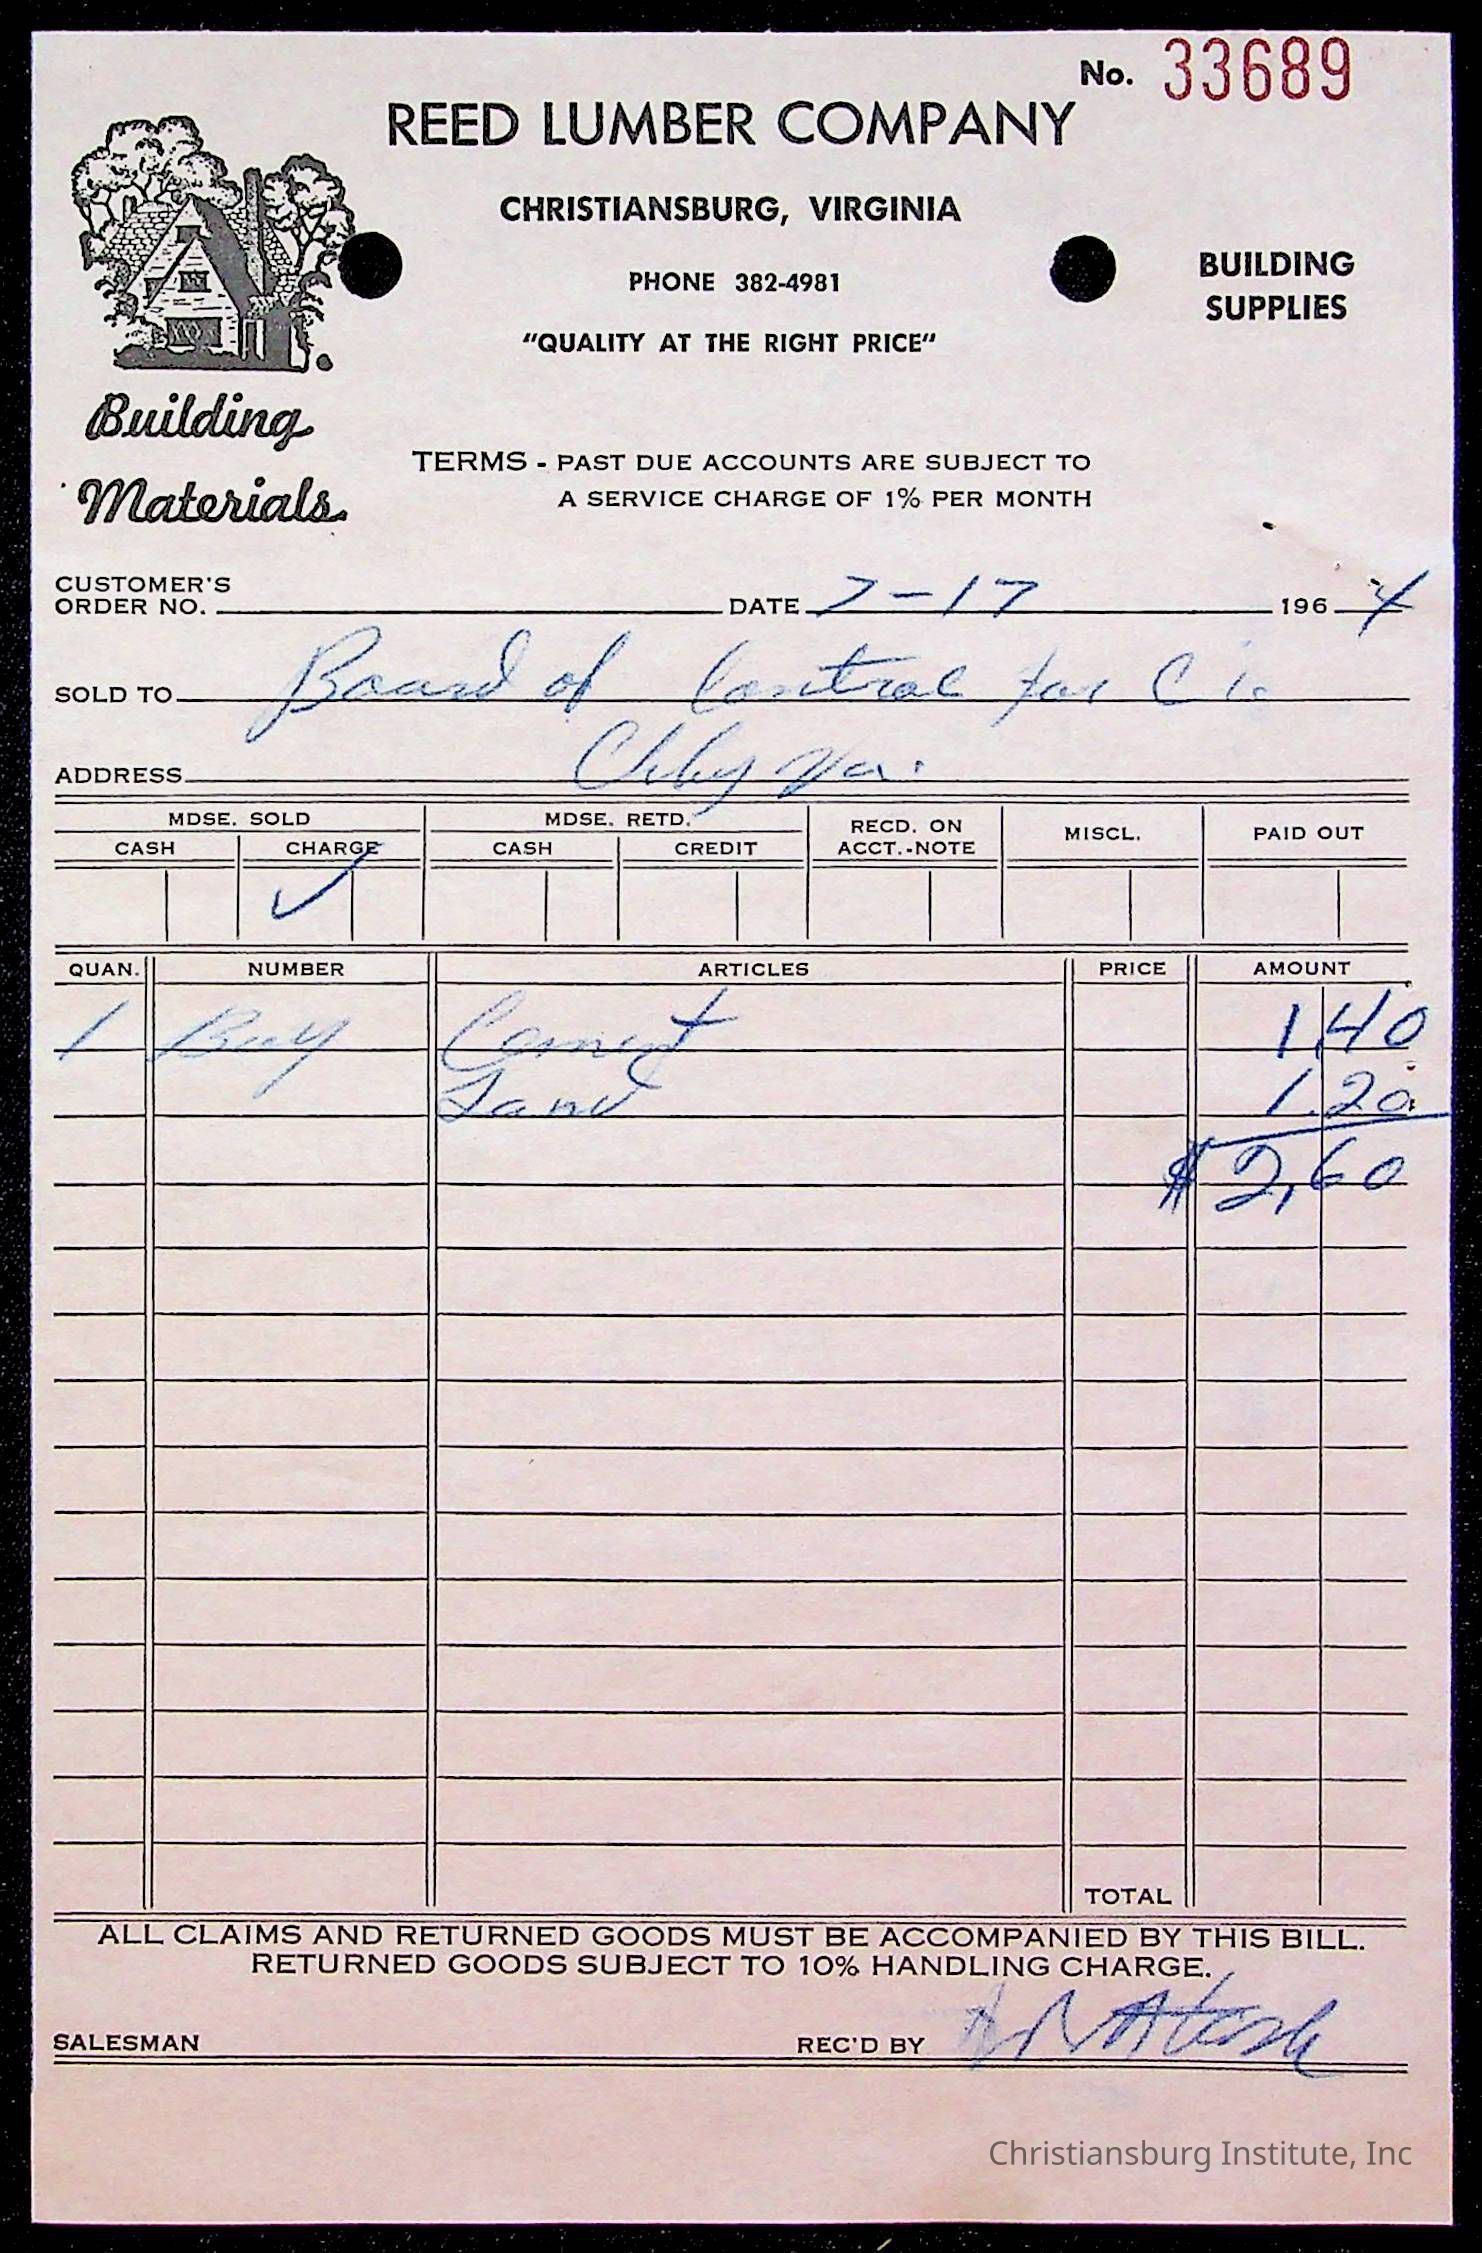 No. 33689
REED LUMBER COMPANY
CHRISTIANSBURG, VIRGINIA
PHONE 382-4981
"QUALITY AT THE RIGHT PRICE"
BUILDING
SUPPLIES
Building
Materials
TERMS - PAST DUE ACCOUNTS ARE SUBJECT TO
A SERVICE CHARGE OF 1% PER MONTH
CUSTOMER'S
ORDER NO. DATE 7-17 1964
SOLD TO Board of Control for C I.
ADDRESS Chbg Va.
MDSE. SOLD MDSE. RETD. RECD. ON ACCT.-NOTE MISCL. PAID OUT
CASH CHARGE CASH CREDIT
✓
QUAN. NUMBER ARTICLES PRICE AMOUNT
1 Bag Cement 1.40
Sand 1.20
$2.60
TOTAL
ALL CLAIMS AND RETURNED GOODS MUST BE ACCOMPANIED BY THIS BILL.
RETURNED GOODS SUBJECT TO 10% HANDLING CHARGE.
SALESMAN REC'D BY
Christiansburg Institute, Inc